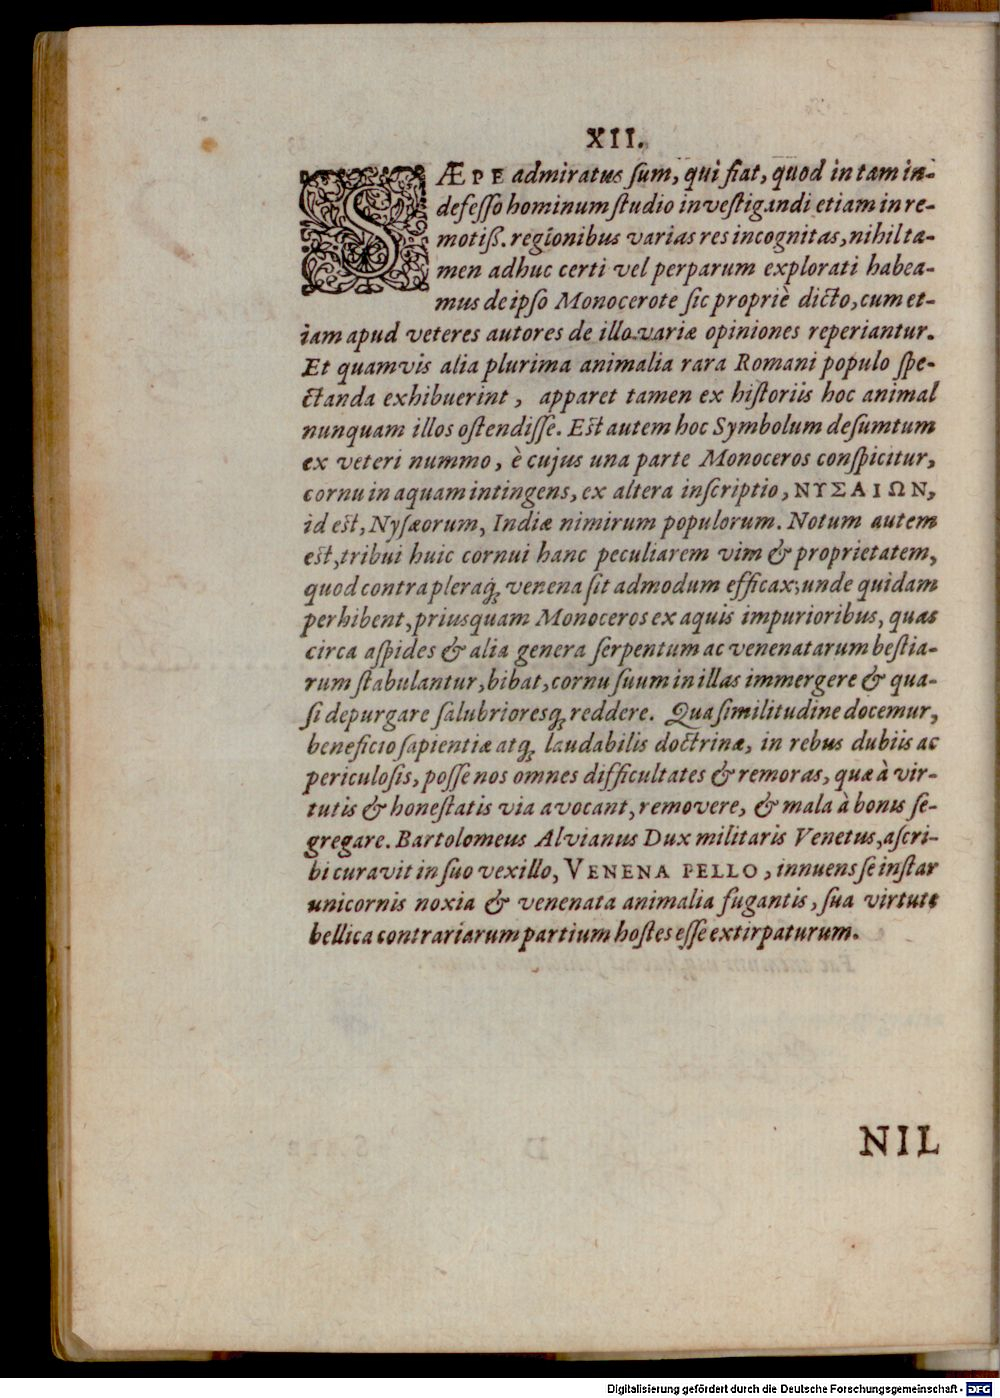 XII.
SÆPE admiratus ſum, qui fiat, quod in tam in-
defeſſo hominum ſtudio inveſtigandi etiam in re-
motiß. regionibus varias res incognitas, nihil ta-
men adhuc certi vel perparum explorati habea-
mus de ipſo Monocerote ſic propriè dicto, cum et-
iam apud veteres autores de illo variæ opiniones reperiantur.
Et quamvis alia plurima animalia rara Romani populo ſpe-
ctanda exhibuerint, apparet tamen ex hiſtoriis hoc animal
nunquam illos oſtendiſſe. Eſt autem hoc Symbolum deſumtum
ex veteri nummo, è cujus una parte Monoceros conſpicitur,
cornu in aquam intingens, ex altera inſcriptio, ΝΥΣΑΙΩΝ,
id eſt, Nyſæorum, Indiæ nimirum populorum. Notum autem
eſt, tribui huic cornui hanc peculiarem vim & proprietatem,
quod contra pleraq; venena ſit admodum efficax; unde quidam
perhibent, priusquam Monoceros ex aquis impurioribus, quas
circa aſpides & alia genera ſerpentum ac venenatarum beſtia-
rum ſtabulantur, bibat, cornu ſuum in illas immergere & qua-
ſi depurgare ſalubrioresq; reddere. Qua ſimilitudine docemur,
beneficio ſapientiæ atq; laudabilis doctrinæ, in rebus dubiis ac
periculoſis, poſſe nos omnes difficultates & remoras, quæ à vir-
tutis & honeſtatis via avocant, removere, & mala à bonis ſe-
gregare. Bartolomeus Alvianus Dux militaris Venetus, aſcri-
bi curavit in ſuo vexillo, VENENA PELLO, innuens ſe inſtar
unicornis noxia & venenata animalia fugantis, ſua virtute
bellica contrariarum partium hoſtes eſſe extirpaturum.
NIL
Digitalisierung gefördert durch die Deutsche Forschungsgemeinschaft - DFG